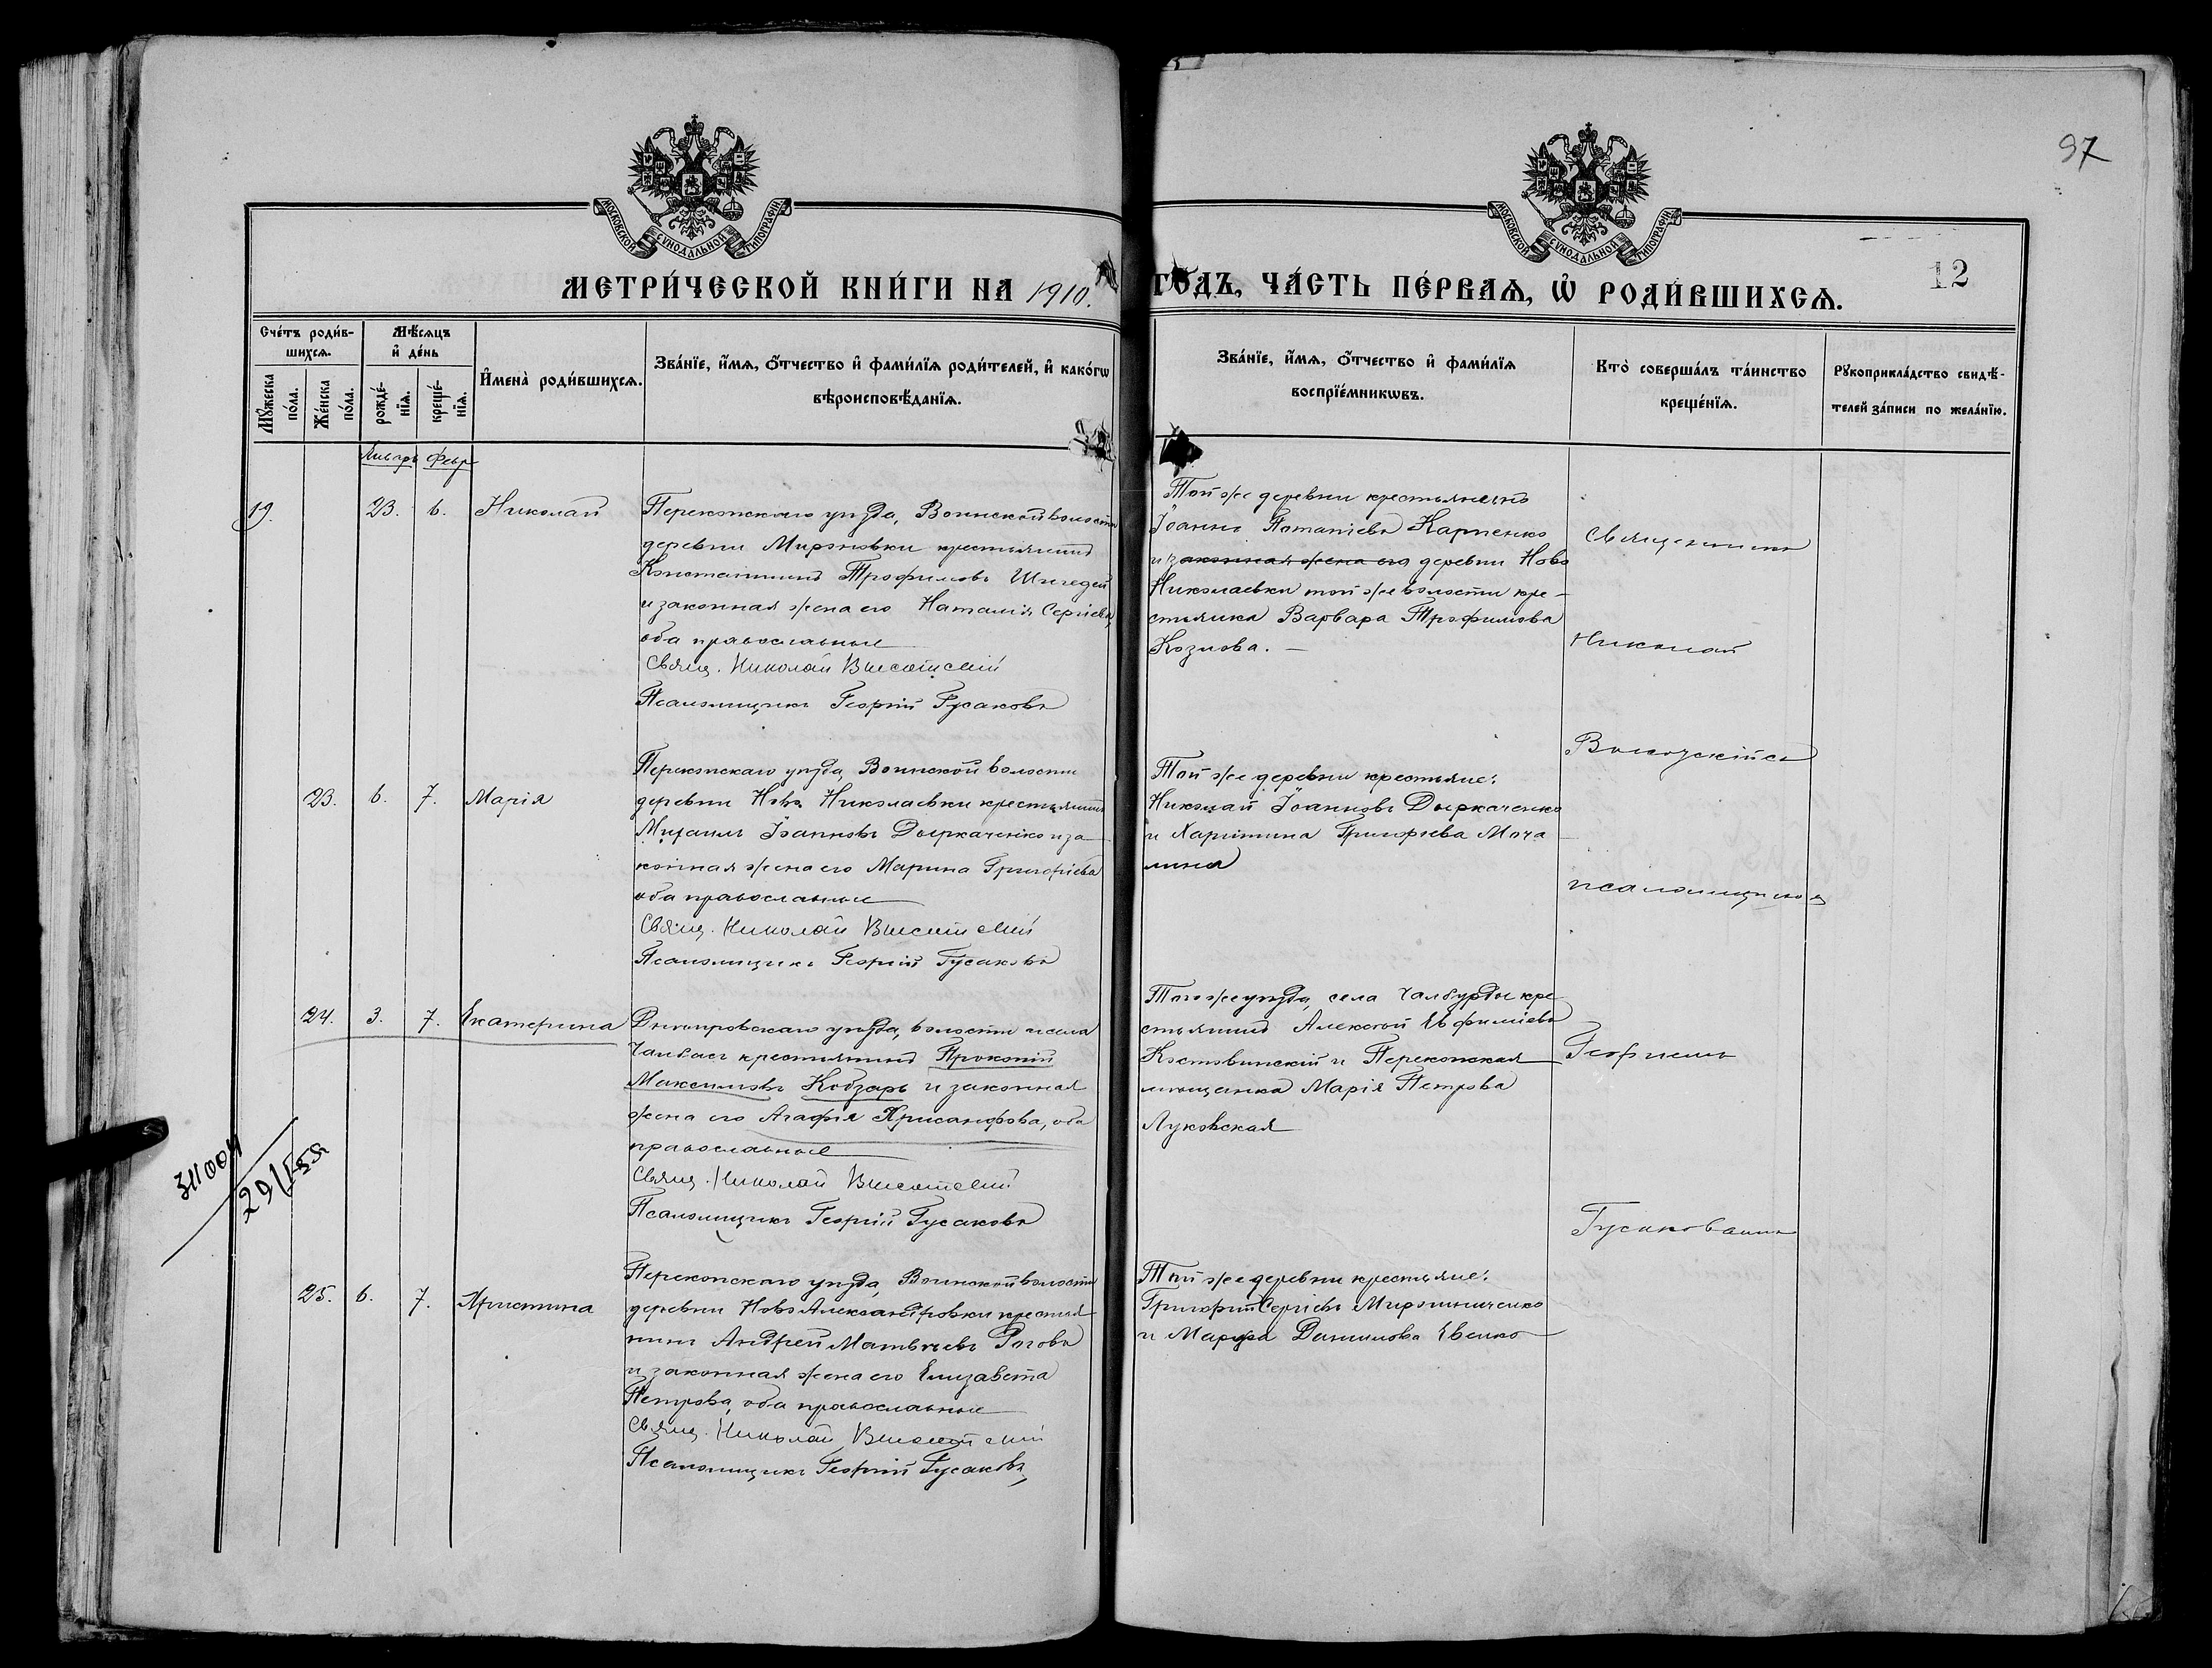 97
МОСКОВСКОЙ СѴНОДАЛЬНОЙ ТИПОГРАФІИ.
МОСКОВСКОЙ СѴНОДАЛЬНОЙ ТИПОГРАФІИ.
МЕТРИ́ЧЕСКОЙ КНИ́ГИ НА 1910.
ГОДЪ, ЧА́СТЬ ПЕ́РВАѦ, Ѡ҆ РОДИ́ВШИХСѦ.
12
Сче́тъ роди́в-
шихсѧ.
Мꙋ́жеска
по́ла.
Же́нска
по́ла.
Мѣ́сѧцъ
и҆ де́нь
рожде́-
нїѧ.
креще́-
нїѧ.
И҆мена̀ роди́вшихсѧ.
Зва́нїе, и҆́мѧ, ѻ҆́тчество и҆ фами́лїѧ роди́телей, и҆ како́гѡ
вѣроисповѣ́данїѧ.
Зва́нїе, и҆́мѧ, ѻ҆́тчество и҆ фами́лїѧ
воспрїе́мникѡвъ.
Кто̀ соверша́лъ та́инство
креще́нїѧ.
Рꙋкоприкла́дство свидѣ́-
телей за́писи по жела́нїю.
Январь Февр
19.
23. 6. Николай
Перекопскаго уѣзда, Воинской волости
деревни Мироновки крестьянинъ
Константинъ Трофимовъ
и законная жена его Наталія Сергіева,
оба православные
Свящ. Николай
Псаломщикъ Георгій Гусаковъ
Той же деревни крестьянинъ
Іоаннъ Потапіевъ Карпенко
и законная жена его деревни Ново
Николаевки той же волости кре-
стьянка Варвара Трофимова
Козлова.
23. 6. 7. Марія
Перекопскаго уѣзда, Воинской волости
деревни Ново Николаевки крестьянинъ
Михаилъ Іоанновъ Дыркаченко и за-
конная жена его Марина Григоріева
оба православные
Свящ. Николай
Псаломщикъ Георгій Гусаковъ
Той же деревни крестьяне:
Николай Іоанновъ Дыркаченко
и Харитина Григорьева Моча
лина
24. 3. 7. Екатерина
Днѣпровскаго уѣзда, волости и села
Чалбасъ крестьянинъ Прокопій
Максимовъ Кобзарь и законная
жена его Агафія Хрисанфова, оба
православные
Свящ. Николай
Псаломщикъ Георгій Гусаковъ
Того же уѣзда, села Чалбурды кре-
стьянинъ Алексѣй Евфиміевъ
Костовинскій и Перекопская
мѣщанка Марія Петрова
Луковская
25. 6. 7. Христина
Перекопскаго уѣзда, Воинской волости
деревни Ново Александровки крестья
нинъ Андрей Матвѣевъ Роговъ
и законная жена его Елизавета
Петрова, оба православные
Свящ. Николай
Псаломщикъ Георгій Гусаковъ
Той же деревни крестьяне:
Григорій Сергіевъ Мирошниченко
и Марфа Данилова Евенко
Священникъ
Николай
псаломщикомъ
Георгіемъ
Гусаковымъ